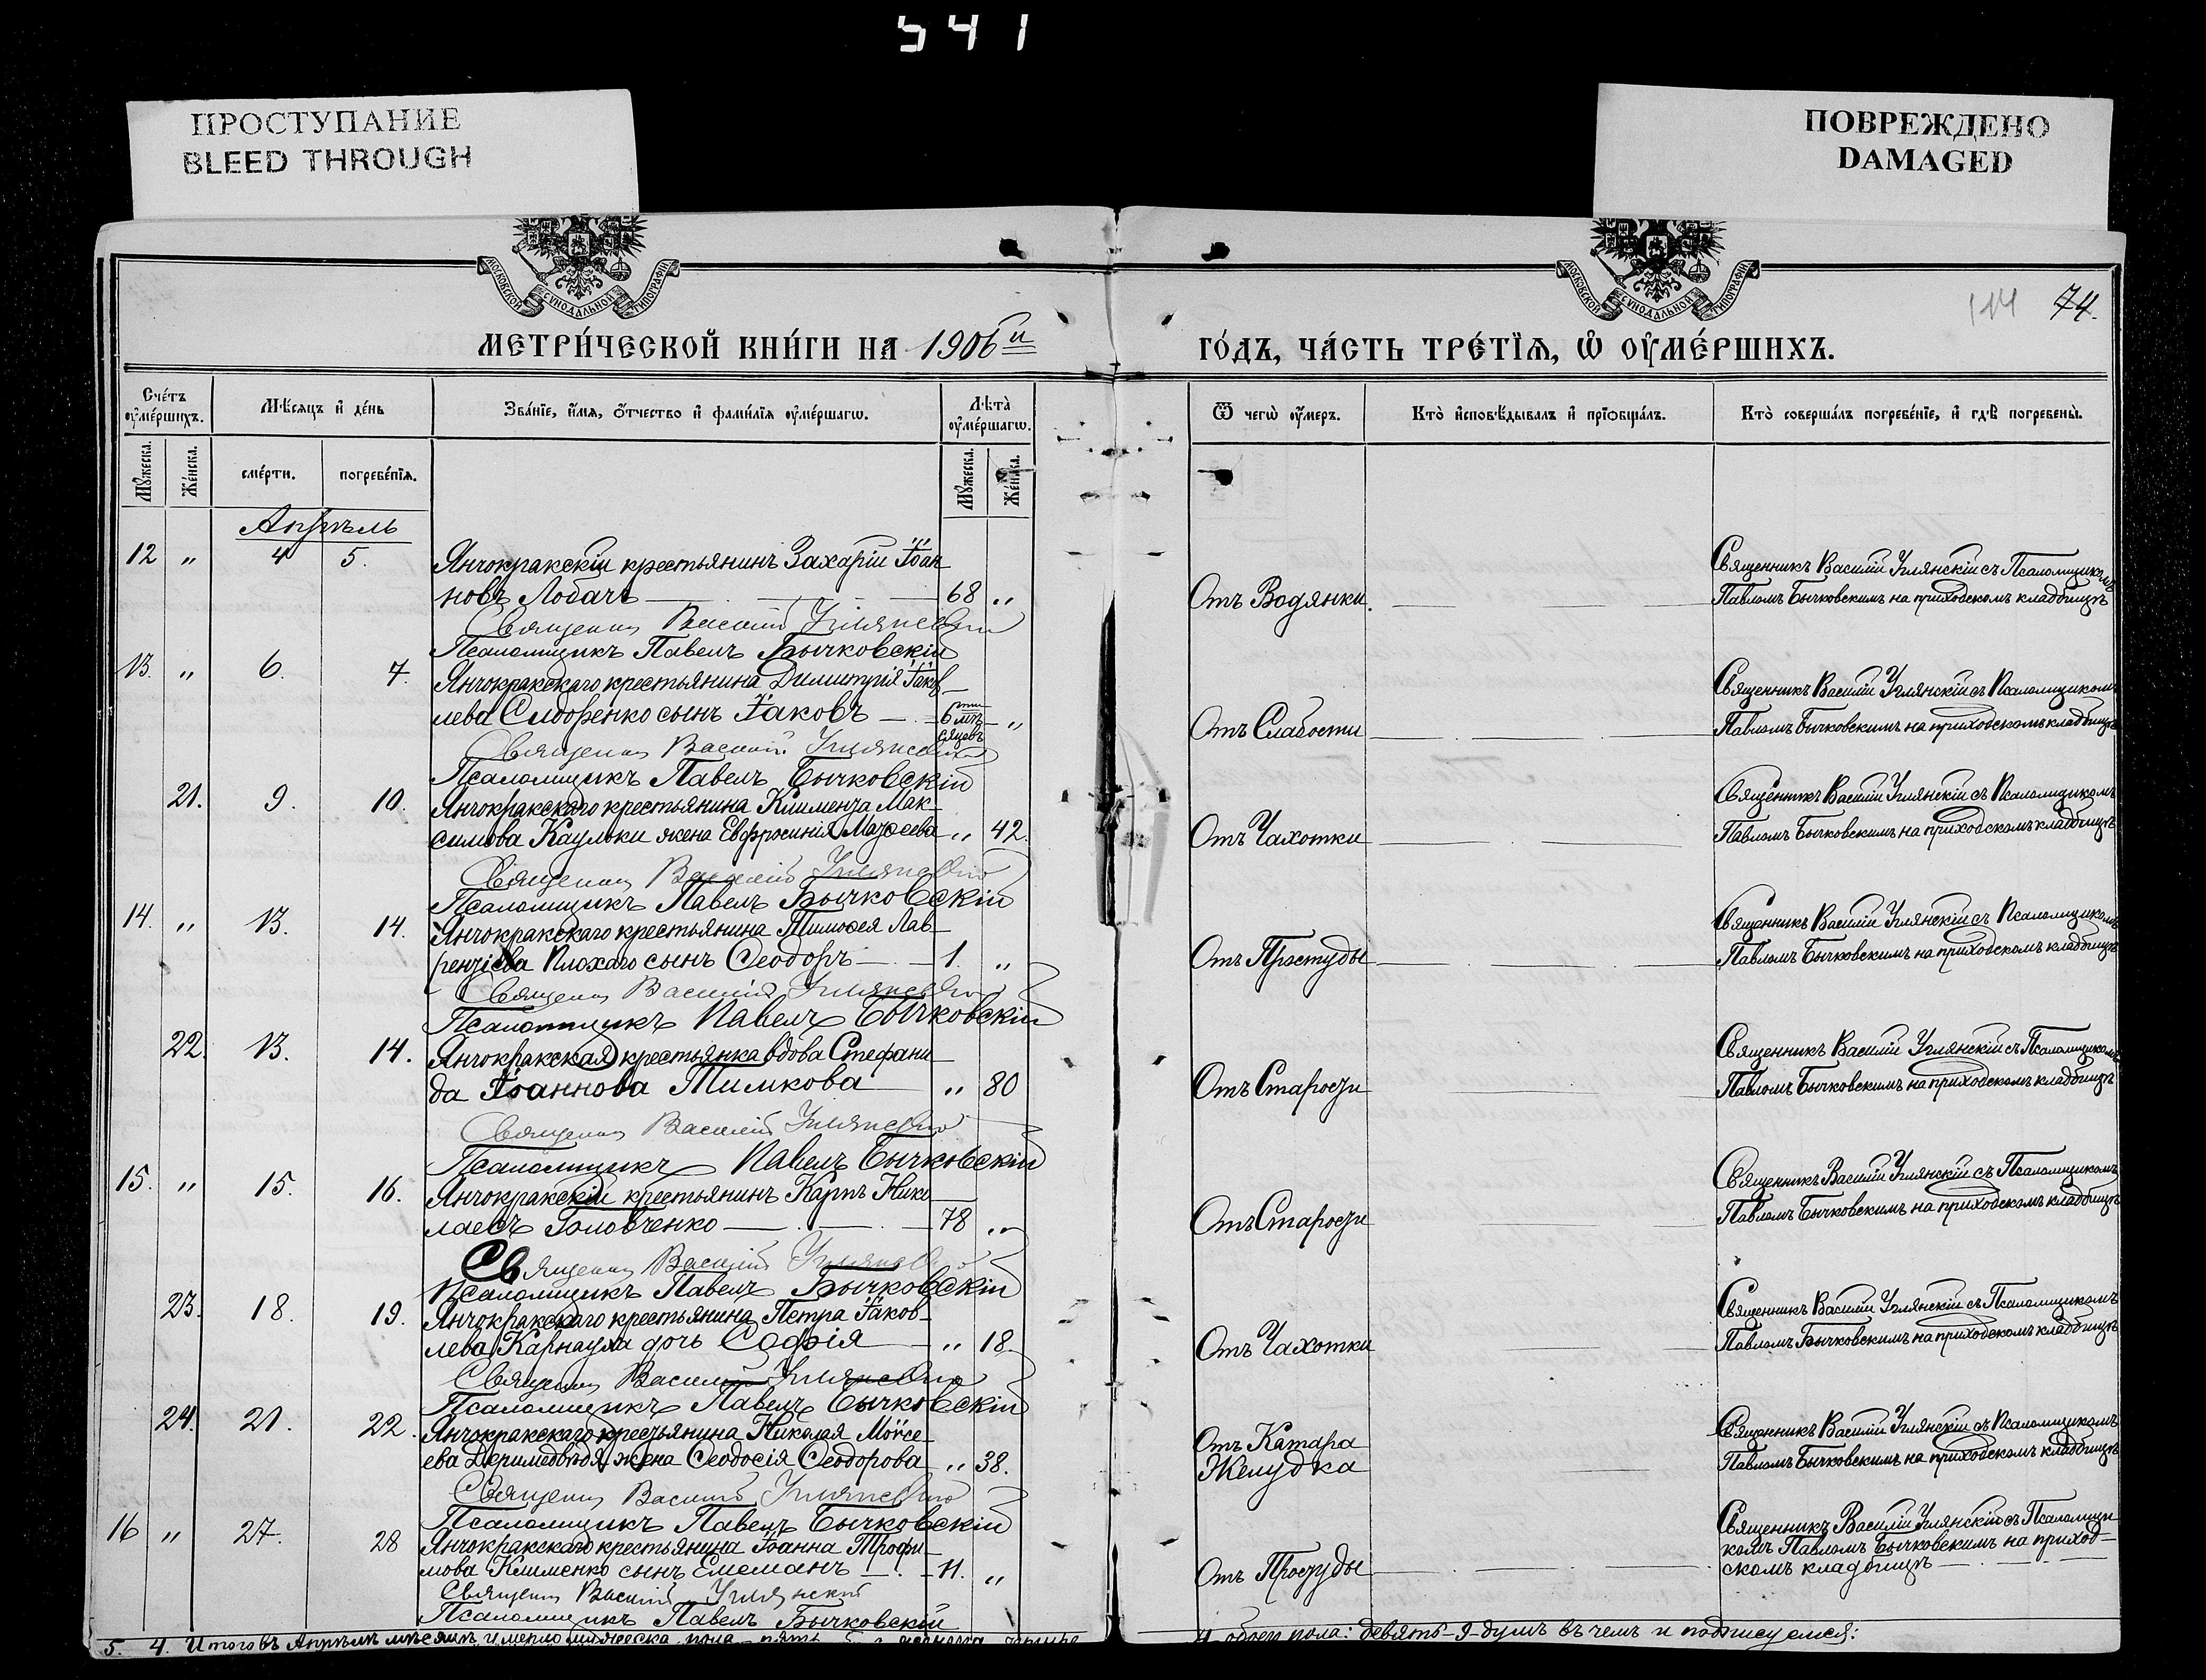 541
ПРОСТУПАНИЕ
BLEED THROUGH
ПОВРЕЖДЕНО
DAMAGED
МОСКОВСКОЙ СѴНОДАЛЬНОЙ ТИПОГРАФІИ
МОСКОВСКОЙ СѴНОДАЛЬНОЙ ТИПОГРАФІИ
74.
МЕТРИ́ЧЕСКОЙ КНИ́ГИ НА 1906й
ГО́ДЪ, ЧА́СТЬ ТРЕ́ТЇѦ, Ѽ ОУ҆МЕ́РШИХЪ.
Сче́тъ оу҆ме́ршихъ.
Мѣ́сяцъ и҆ де́нь
Зва́нїе, и҆́мѧ, ѻ҆́тчество и҆ фамі́лїѧ оу҆ме́ршагѡ.
Лѣ́та оу҆ме́ршагѡ.
Ѿ чегѡ̀ оу҆́меръ.
Кто̀ и҆сповѣ́дывалъ и҆ прїѡбща́лъ.
Кто̀ соверша́лъ погребе́нїе, и҆ гдѣ̀ погребены̀.
Мꙋ́жеска.
Же́нска.
сме́рти.
погребе́нїѧ.
Мꙋ́жеска.
Же́нска.
Апрѣль
12 " 4 5. Янчокракскій крестьянинъ Захарій Іоан
новъ Лобачъ 68 " Отъ Водянки.
Священникъ Василій Углянскій съ Псаломщикомъ
Павломъ Бычковскимъ на приходскомъ кладбищѣ
Священникъ Василій Углянскій
Псаломщикъ Павелъ Бычковскій
13. " 6. 7. Янчокракскаго крестьянина Димитрія Іаков
лева Сидоренко сынъ Іаковъ 6ти мѣсяцевъ " Отъ Слабости
Священникъ Василій Углянскій съ Псаломщикомъ
Павломъ Бычковскимъ на приходскомъ кладбищѣ
Священникъ Василій Углянскій
Псаломщикъ Павелъ Бычковскій
21. 9. 10. Янчокракскаго крестьянина Климента Мак-
симова Каульки жена Евфросинія Матѳеева " 42. Отъ Чахотки
Священникъ Василій Углянскій съ Псаломщикомъ
Павломъ Бычковскимъ на приходскомъ кладбищѣ
Священникъ Василій Углянскій
Псаломщикъ Павелъ Бычковскій
14. " 13. 14. Янчокракскаго крестьянина Тимоѳея Лав-
рентіева Плохаго сынъ Ѳеодоръ 1. " Отъ Простуды
Священникъ Василій Углянскій съ Псаломщикомъ
Павломъ Бычковскимъ на приходскомъ кладбищѣ
Священникъ Василій Углянскій
Псаломщикъ Павелъ Бычковскій
22. 13. 14. Янчокракская крестьянка вдова Стефани
да Іоаннова Тимкова " 80 Отъ Старости
Священникъ Василій Углянскій съ Псаломщикомъ
Павломъ Бычковскимъ на приходскомъ кладбищѣ
Священникъ Василій Углянскій
Псаломщикъ Павелъ Бычковскій
15. " 15. 16. Янчокракскій крестьянинъ Карпъ Нико
лаевъ Головченко 78 " Отъ Старости
Священникъ Василій Углянскій съ Псаломщикомъ
Павломъ Бычковскимъ на приходскомъ кладбищѣ
Священникъ Василій Углянскій
Псаломщикъ Павелъ Бычковскій
23. 18. 19. Янчокракскаго крестьянина Петра Іаков-
лева Карнауха дочь Софія " 18. Отъ Чахотки
Священникъ Василій Углянскій съ Псаломщикомъ
Павломъ Бычковскимъ на приходскомъ кладбищѣ
Священникъ Василій Углянскій
Псаломщикъ Павелъ Бычковскій
24. 21. 22. Янчокракскаго крестьянина Николая Мойсе-
ева Деримедвѣдя жена Ѳеодосія Ѳеодорова " 38. Отъ Катара
Желудка
Священникъ Василій Углянскій съ Псаломщикомъ
Павломъ Бычковскимъ на приходскомъ кладбищѣ
Священникъ Василій Углянскій
Псаломщикъ Павелъ Бычковскій
16 " 27. 28 Янчокракскаго крестьянина Іоанна Трофи-
мова Клименко сынъ Емеліанъ 11. " Отъ Простуды
Священникъ Василій Углянскій съ Псаломщи
комъ Павломъ Бычковскимъ на приход-
скомъ кладбищѣ
Священникъ Василій Углянскій
Псаломщикъ Павелъ Бычковскій
5. 4. Итого въ Апрѣлѣ мѣсяцѣ умерло мужеска пола пять женска четыре
А обоего пола: девять-9-душъ въ чемъ и подписуемся: